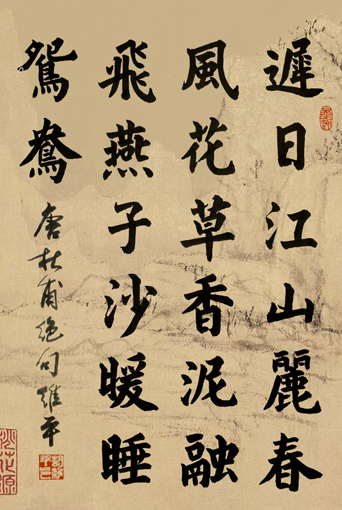 遲日江山麗春
風花草香泥融
飛燕子沙暖睡
鴛鴦
唐杜甫絕句維平
桃花源